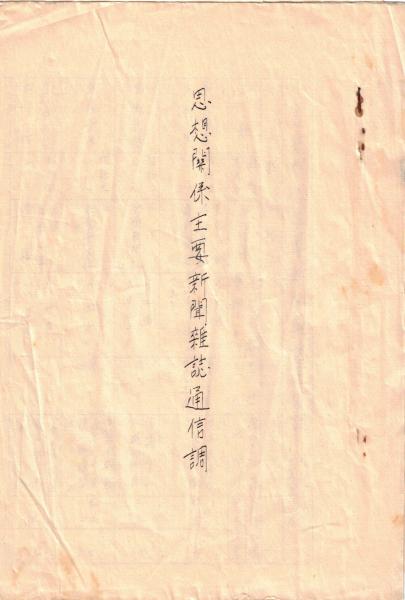 思想関係主要新聞雑誌通信調